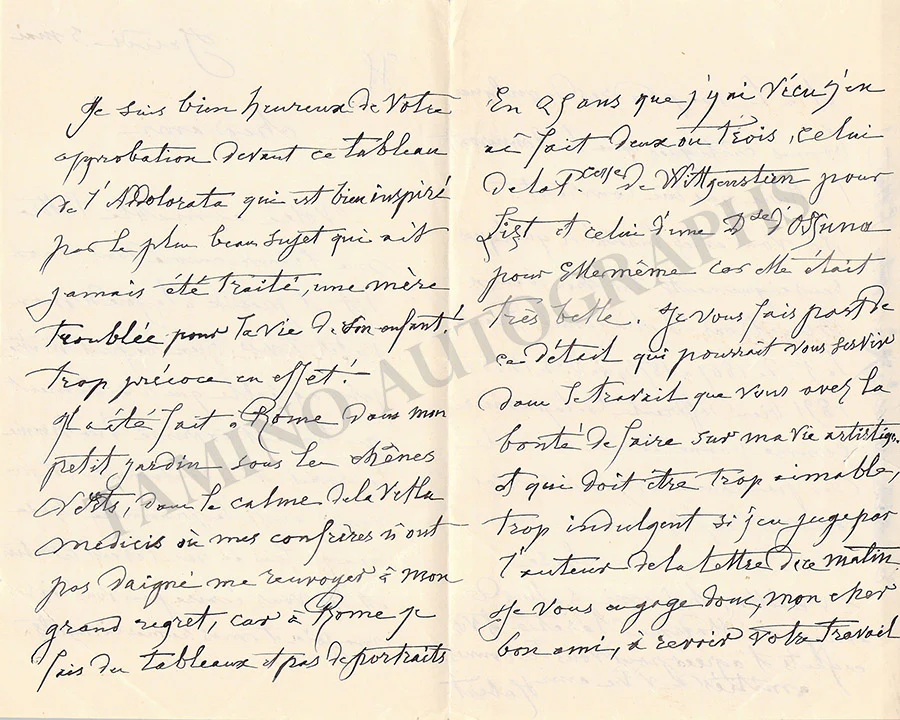 Je suis bien heureux de votre
approbation devant ce tableau
de l'Addolorata qui est bien inspiré
par le plus beau sujet qui ait
jamais été traité, une mère
troublée pour la vie de son enfant!
trop précoce en effet!
Il a été fait à Rome dans mon
petit jardin sous les chênes
verts, dans le calme de la Villa
Medicis où mes confrères n'ont
pas daigné me renvoyer à mon
grand regret, car à Rome je
fais des tableaux et pas de portraits
En 25 ans que j'y ai vécu j'en
ai fait deux ou trois, celui
de la P.cesse de Wittgenstein pour
Liszt et celui d'une Dsse d'Ossuna
pour Elle même car elle était
très belle. Je vous fais part de
ce détail qui pourrait vous servir
dans le travail que vous avez la
bonté de faire sur ma vie artistiq.
et qui doit être trop aimable,
trop indulgent si j'en juge par
l'auteur de la lettre de ce matin.
Je vous engage donc, mon cher
bon ami, à revoir votre travail
TAMINO AUTOGRAPHS